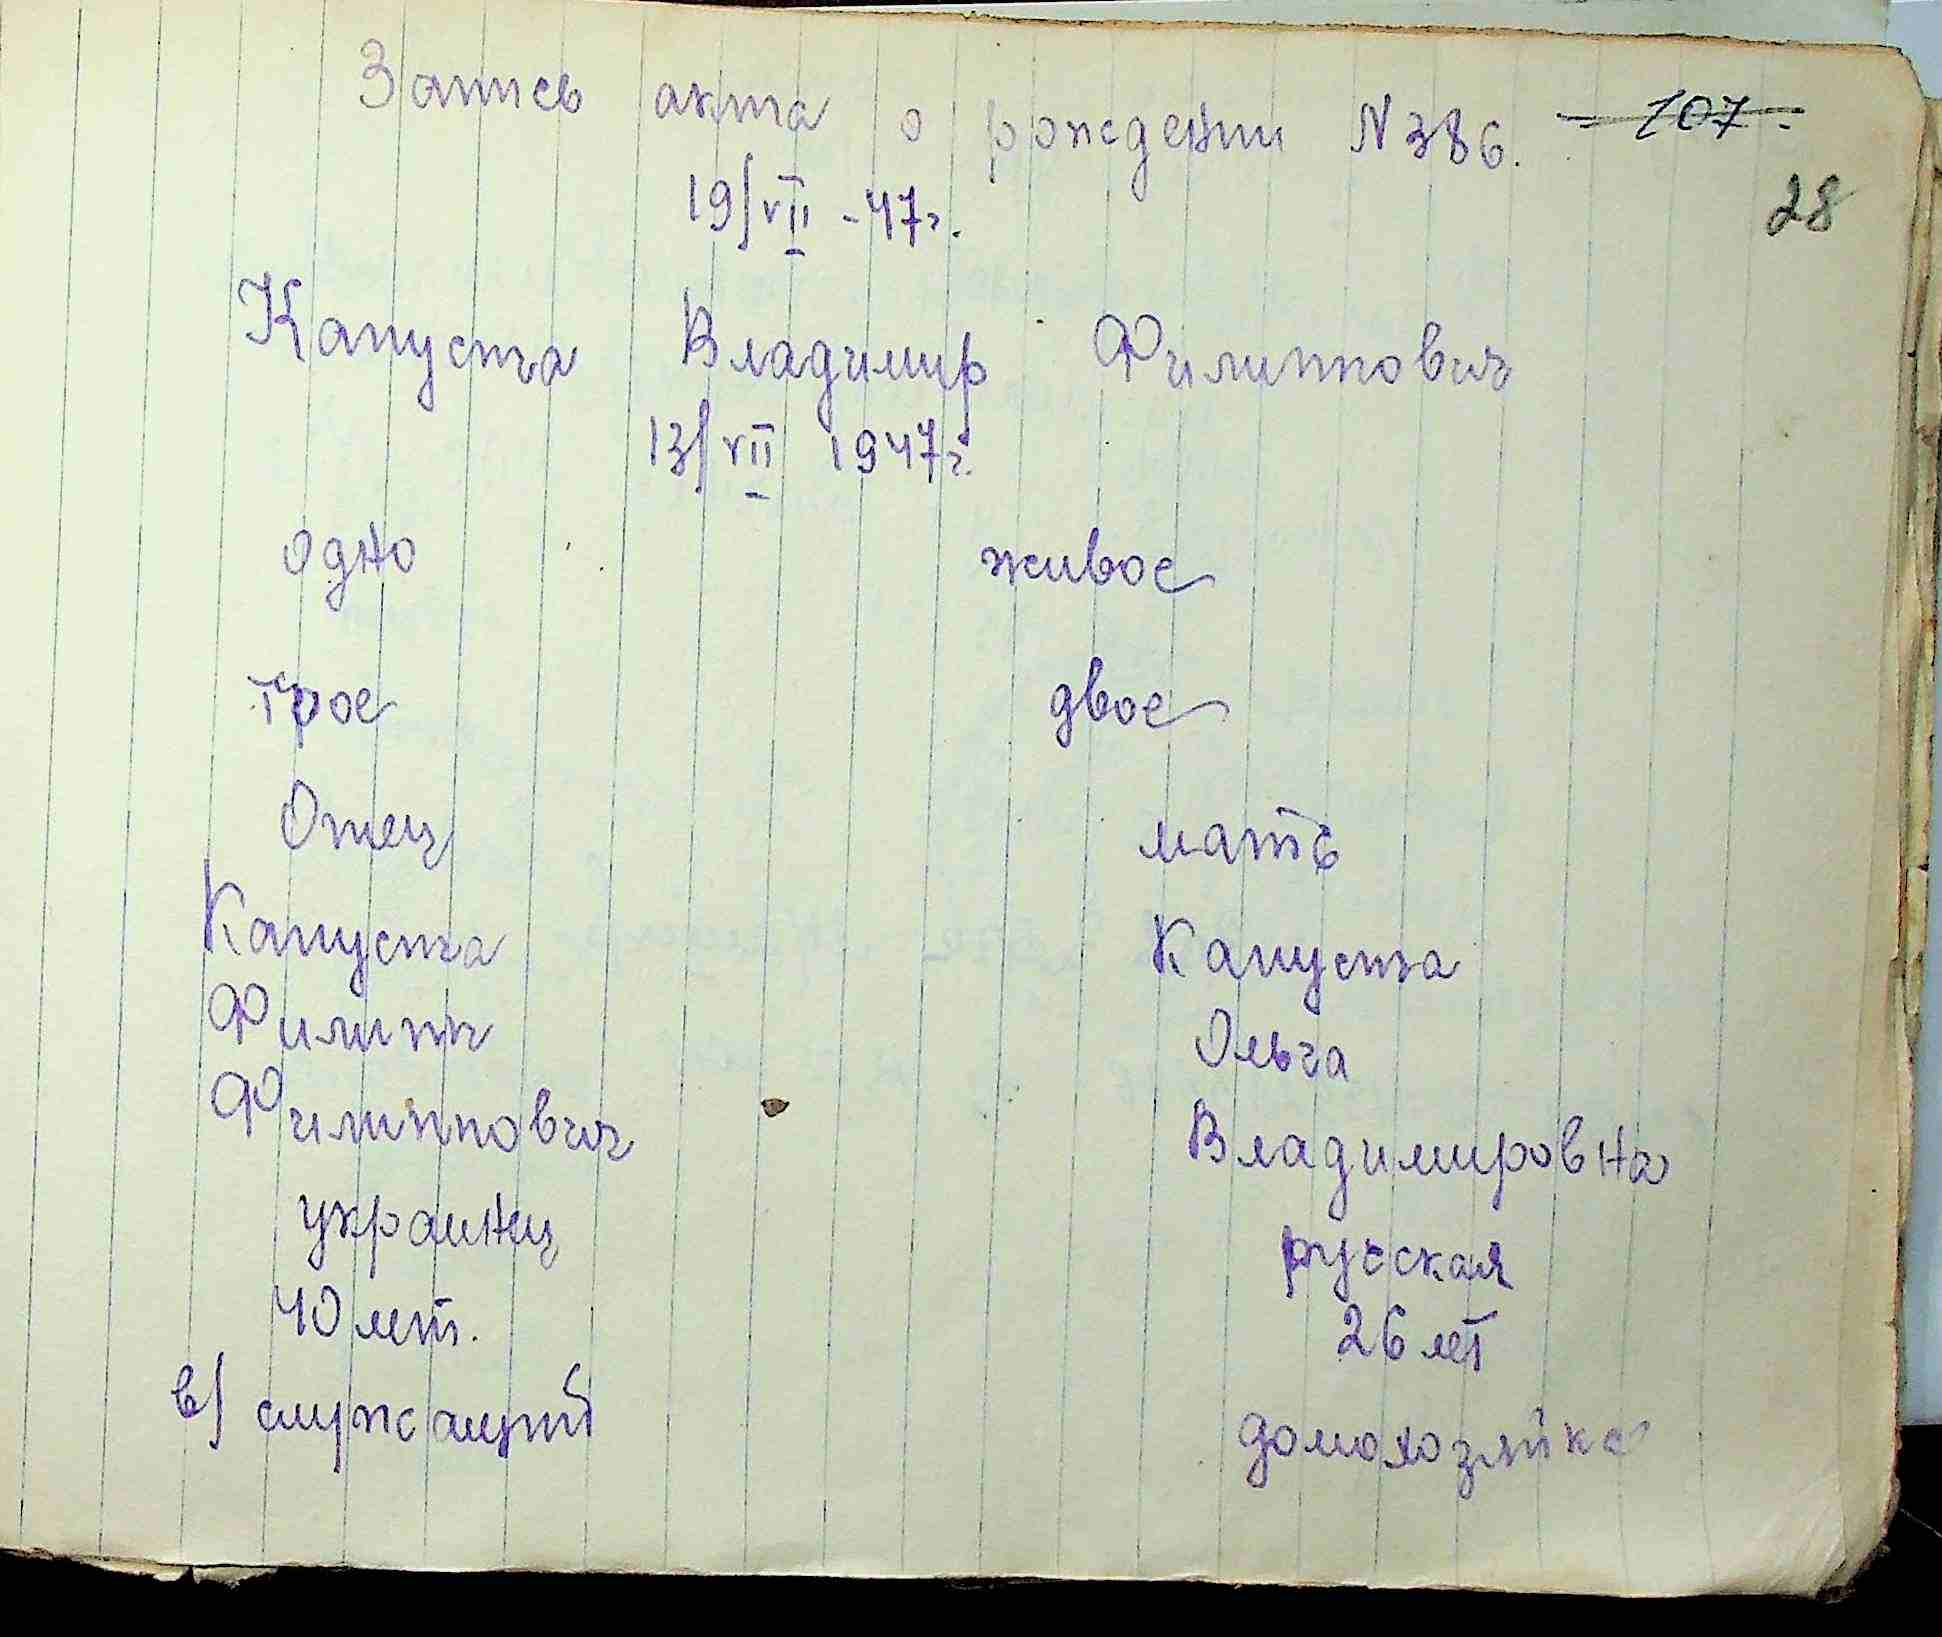 Запись акта о рождении N 386. - 107 -
28
19/VII -47г.
Капуста Владимир Филиппович
13/VII 1947г.
одно живое
трое двое
Отец мать
Капуста Капуста
Филипп Ольга
Филиппович Владимировна
украинец русская
40 лет. 26 лет
в/служащий домохозяйка